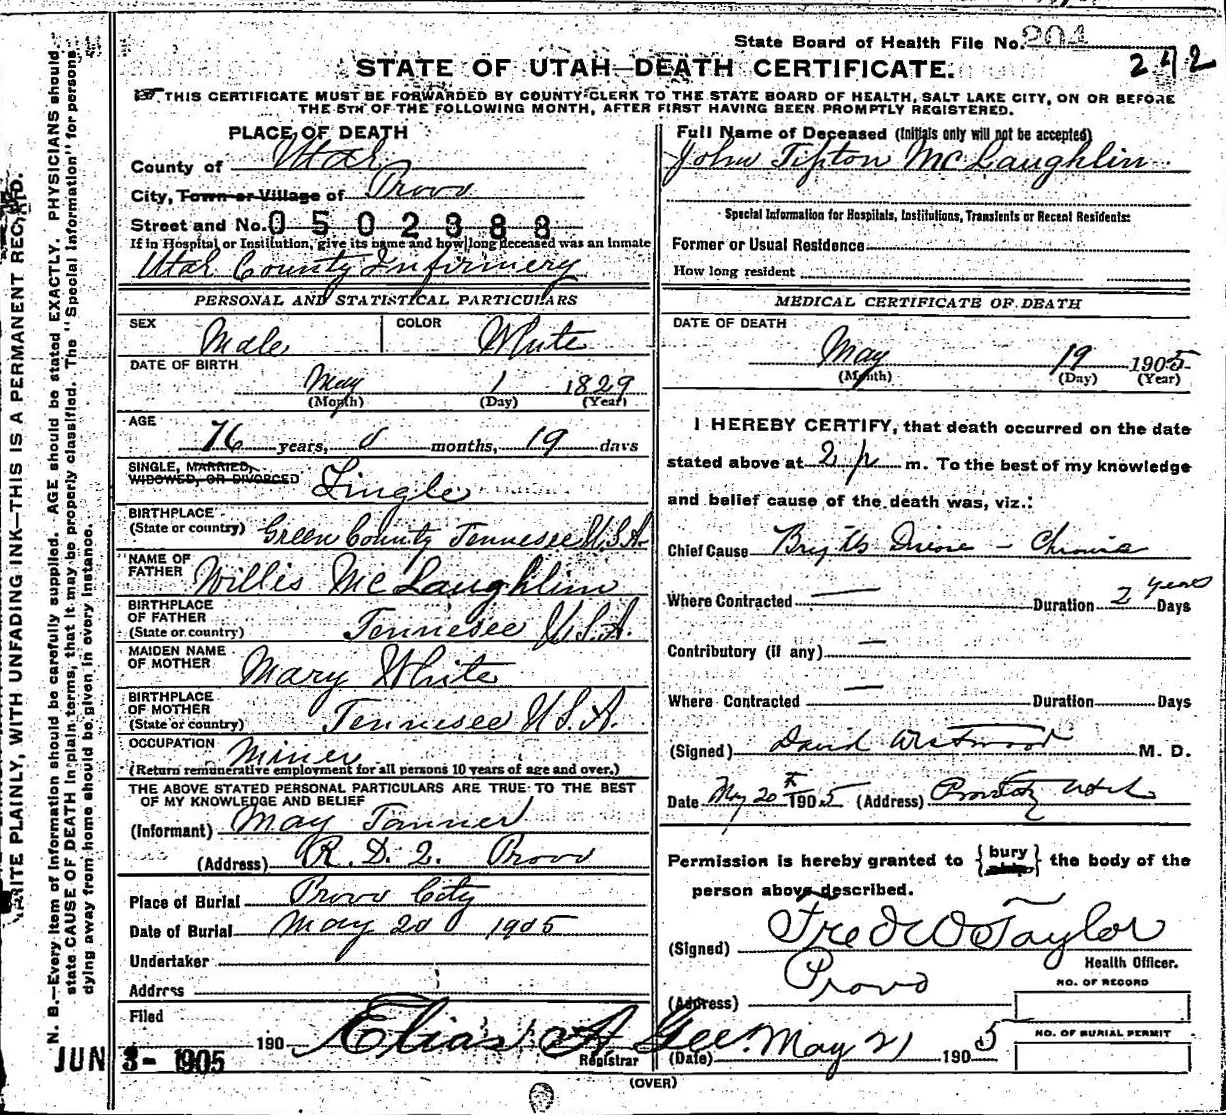 State Board of Health File No. 204
242
STATE OF UTAH—DEATH CERTIFICATE.
THIS CERTIFICATE MUST BE FORWARDED BY COUNTY CLERK TO THE STATE BOARD OF HEALTH, SALT LAKE CITY, ON OR BEFORE
THE 5TH OF THE FOLLOWING MONTH, AFTER FIRST HAVING BEEN PROMPTLY REGISTERED.
WRITE PLAINLY, WITH UNFADING INK—THIS IS A PERMANENT RECORD.
N. B.—Every item of information should be carefully supplied. AGE should be stated EXACTLY. PHYSICIANS should
state CAUSE OF DEATH in plain terms, that it may be properly classified. The "Special Information" for persons
dying away from home should be given in every instance.
PLACE OF DEATH
County of Utah
City, Town or Village of Provo
Street and No. 0502388
If in Hospital or Institution, give its name and how long deceased was an inmate
Utah County Infirmery
PERSONAL AND STATISTICAL PARTICULARS
SEX Male COLOR White
DATE OF BIRTH
May 1 1829
(Month) (Day) (Year)
AGE
76 years, 0 months, 19 days
SINGLE, MARRIED,
WIDOWED, OR DIVORCED Single
BIRTHPLACE
(State or country) Green County Tennesee U.S.A.
NAME OF
FATHER Willis McLaughlin
BIRTHPLACE
OF FATHER
(State or country) Tennesee U.S.A.
MAIDEN NAME
OF MOTHER Mary White
BIRTHPLACE
OF MOTHER
(State or country) Tennesee U.S.A.
OCCUPATION Miner
(Return remunerative employment for all persons 10 years of age and over.)
THE ABOVE STATED PERSONAL PARTICULARS ARE TRUE TO THE BEST
OF MY KNOWLEDGE AND BELIEF
(Informant) May Tanner
(Address) R. D. 2. Provo
Place of Burial Provo City
Date of Burial May 20 1905
Undertaker
Address
Filed
190 Elias A Gee.
Registrar
JUN 3- 1905
Full Name of Deceased (Initials only will not be accepted)
John Tipton McLaughlin
Special Information for Hospitals, Institutions, Transients or Recent Residents:
Former or Usual Residence
How long resident
MEDICAL CERTIFICATE OF DEATH
DATE OF DEATH
May 19 1905
(Month) (Day) (Year)
I HEREBY CERTIFY, that death occurred on the date
stated above at 2 p m. To the best of my knowledge
and belief cause of the death was, viz.:
Chief Cause Brights Disease - Chronic
Where Contracted — Duration 2 years Days
Contributory (if any) —
Where Contracted — Duration Days
(Signed) David Westwood M. D.
Date May 20th 1905 (Address) Provo City Utah
Permission is hereby granted to {bury} the body of the
person above described.
(Signed) Fred W Taylor
Health Officer.
(Address) Provo
NO. OF RECORD
NO. OF BURIAL PERMIT
(Date) May 21 1905
(OVER)